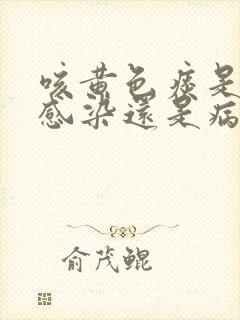 咳黄色痰是
感染還是病
俞茂鲲